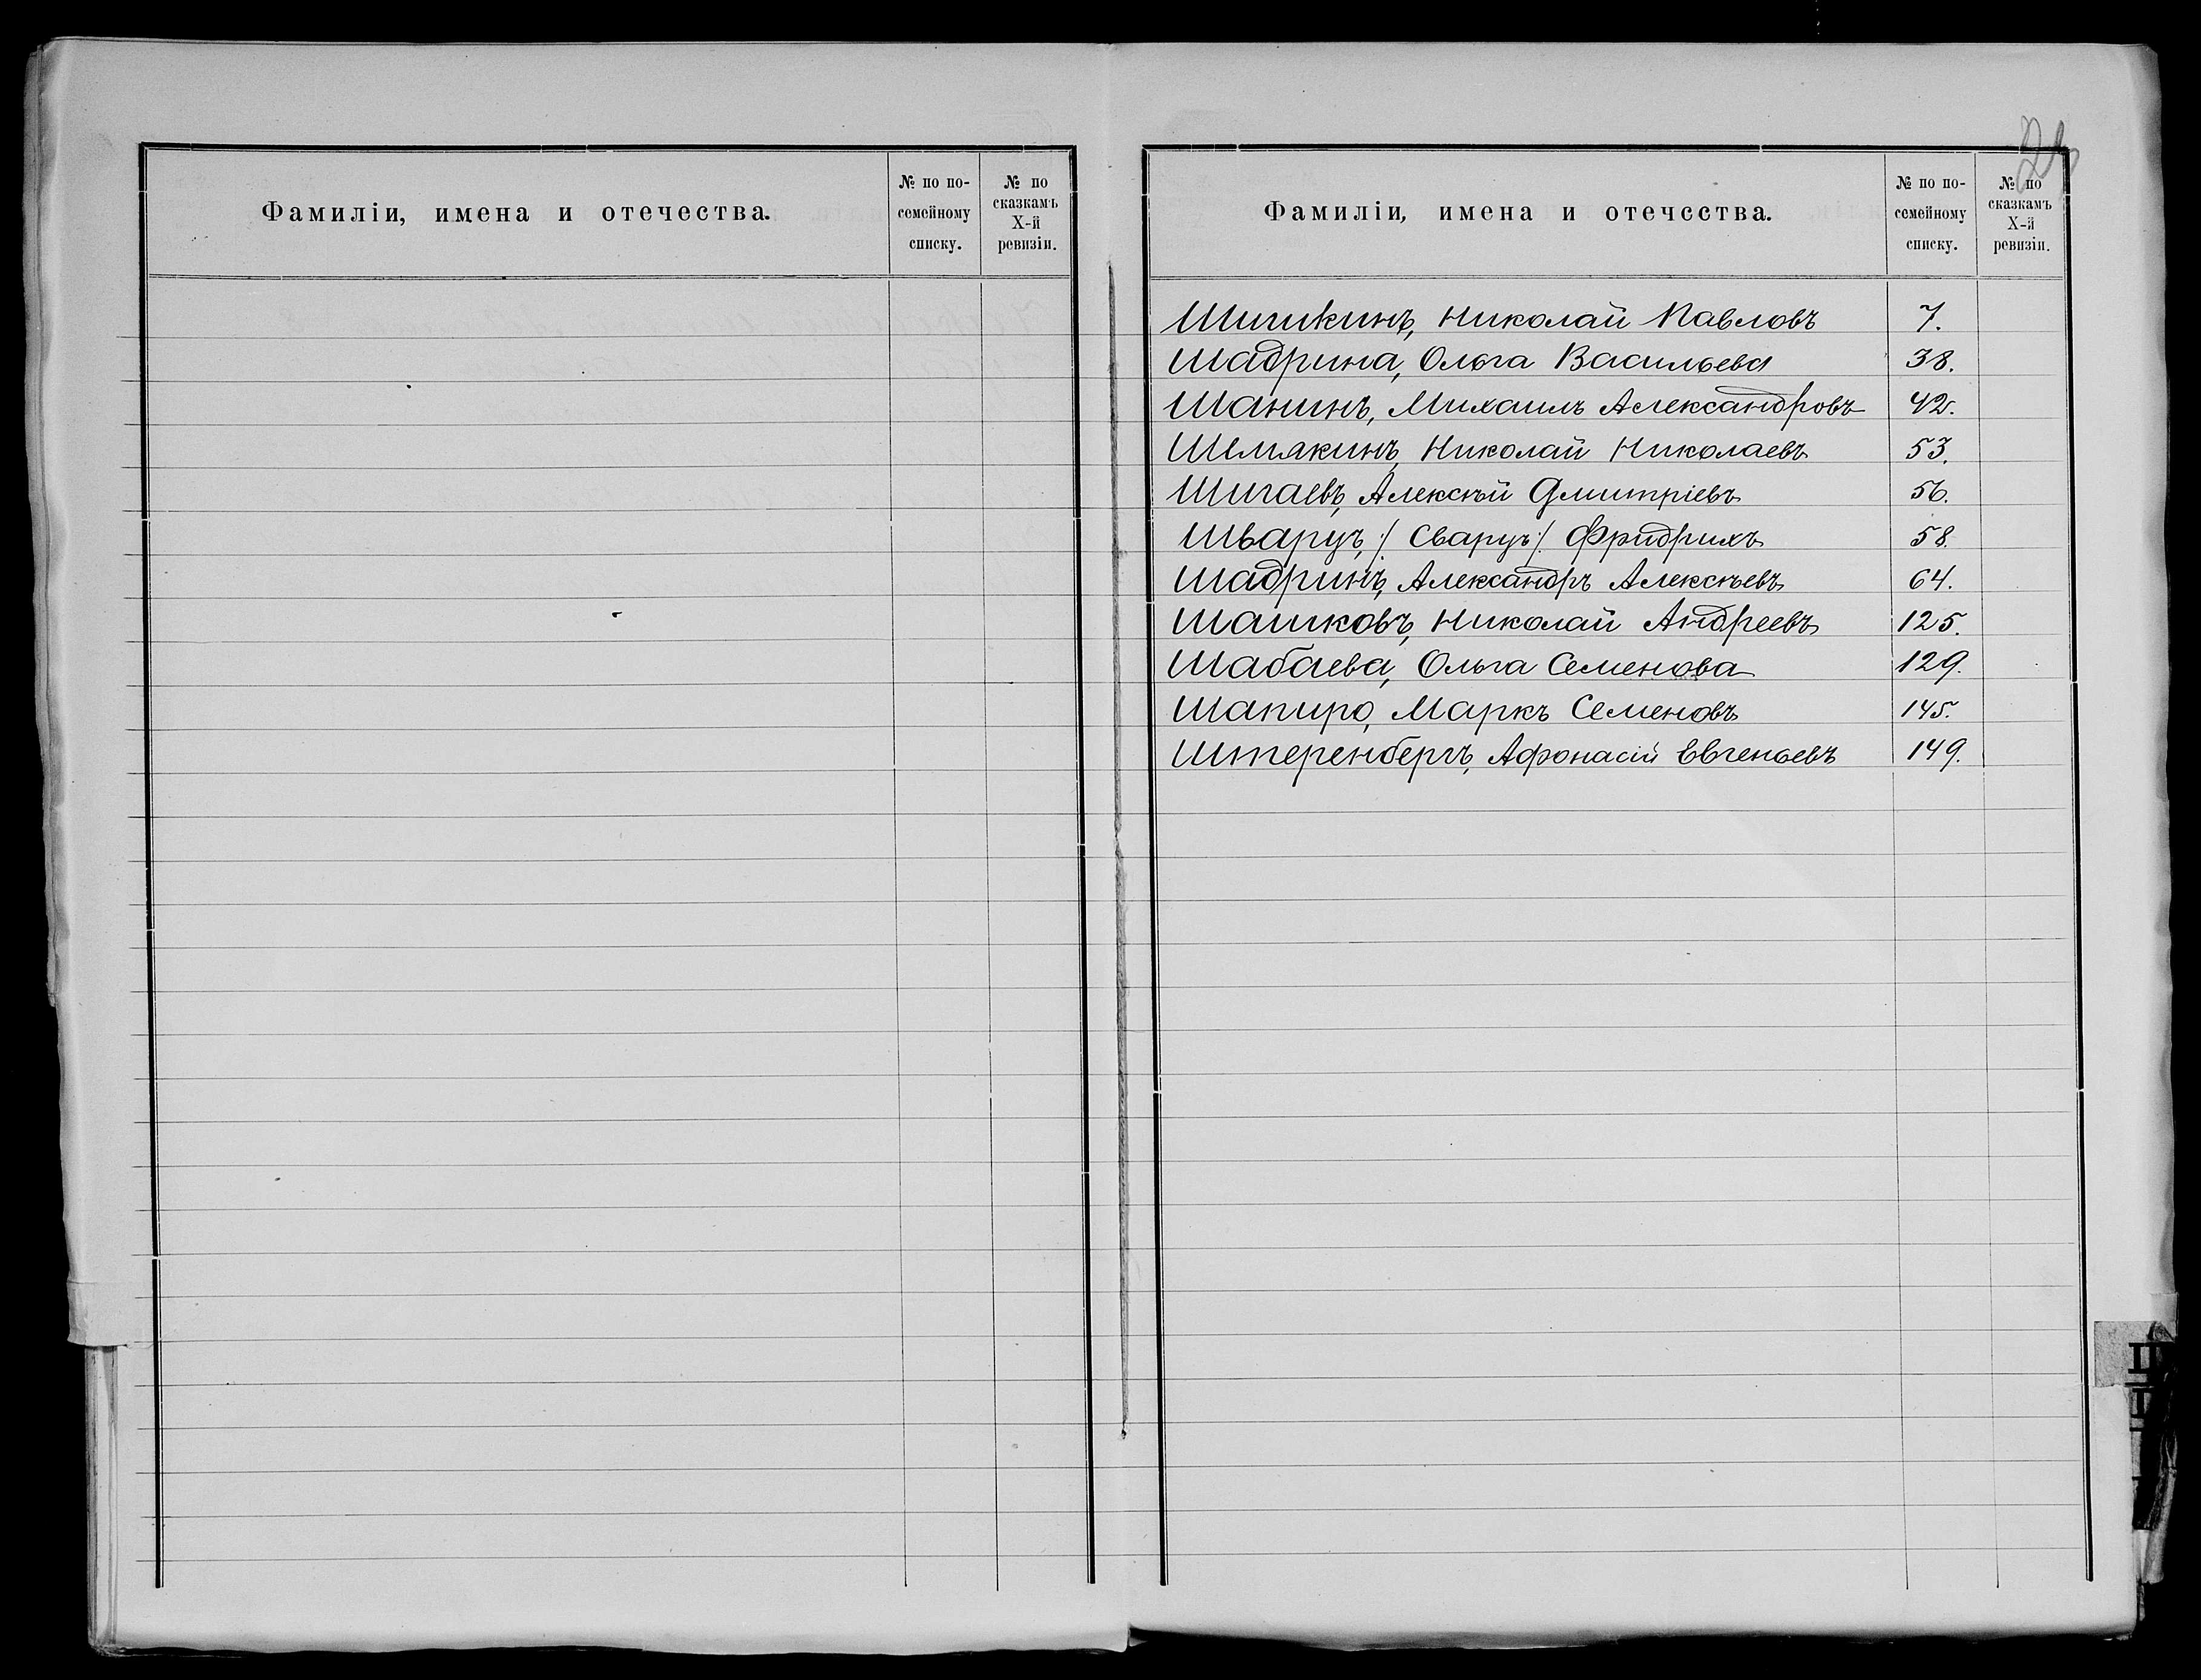 Фамиліи, имена и отечества.
№ по по-
семейному
списку.
№ по
сказкамъ
X-й
ревизіи.
Фамиліи, имена и отечества.
№ по по-
семейному
списку.
№ по
сказкамъ
X-й
ревизіи.
Шишкинъ, Николай Павловъ 7.
Шадрина, Ольга Васильева 38.
Шанинъ, Михаилъ Александровъ 42.
Шемякинъ, Николай Николаевъ 53.
Шигаевъ, Алексѣй Дмитріевъ 56.
Шварцъ, /: Сварцъ :/ Фридрихъ 58.
Шадринъ, Александръ Алексѣевъ 64.
Шашковъ, Николай Андреевъ 125.
Шабаева, Ольга Семенова 129.
Шапиро, Маркъ Семеновъ 145.
Штеренбергъ, Афонасій Евгеньевъ 149.